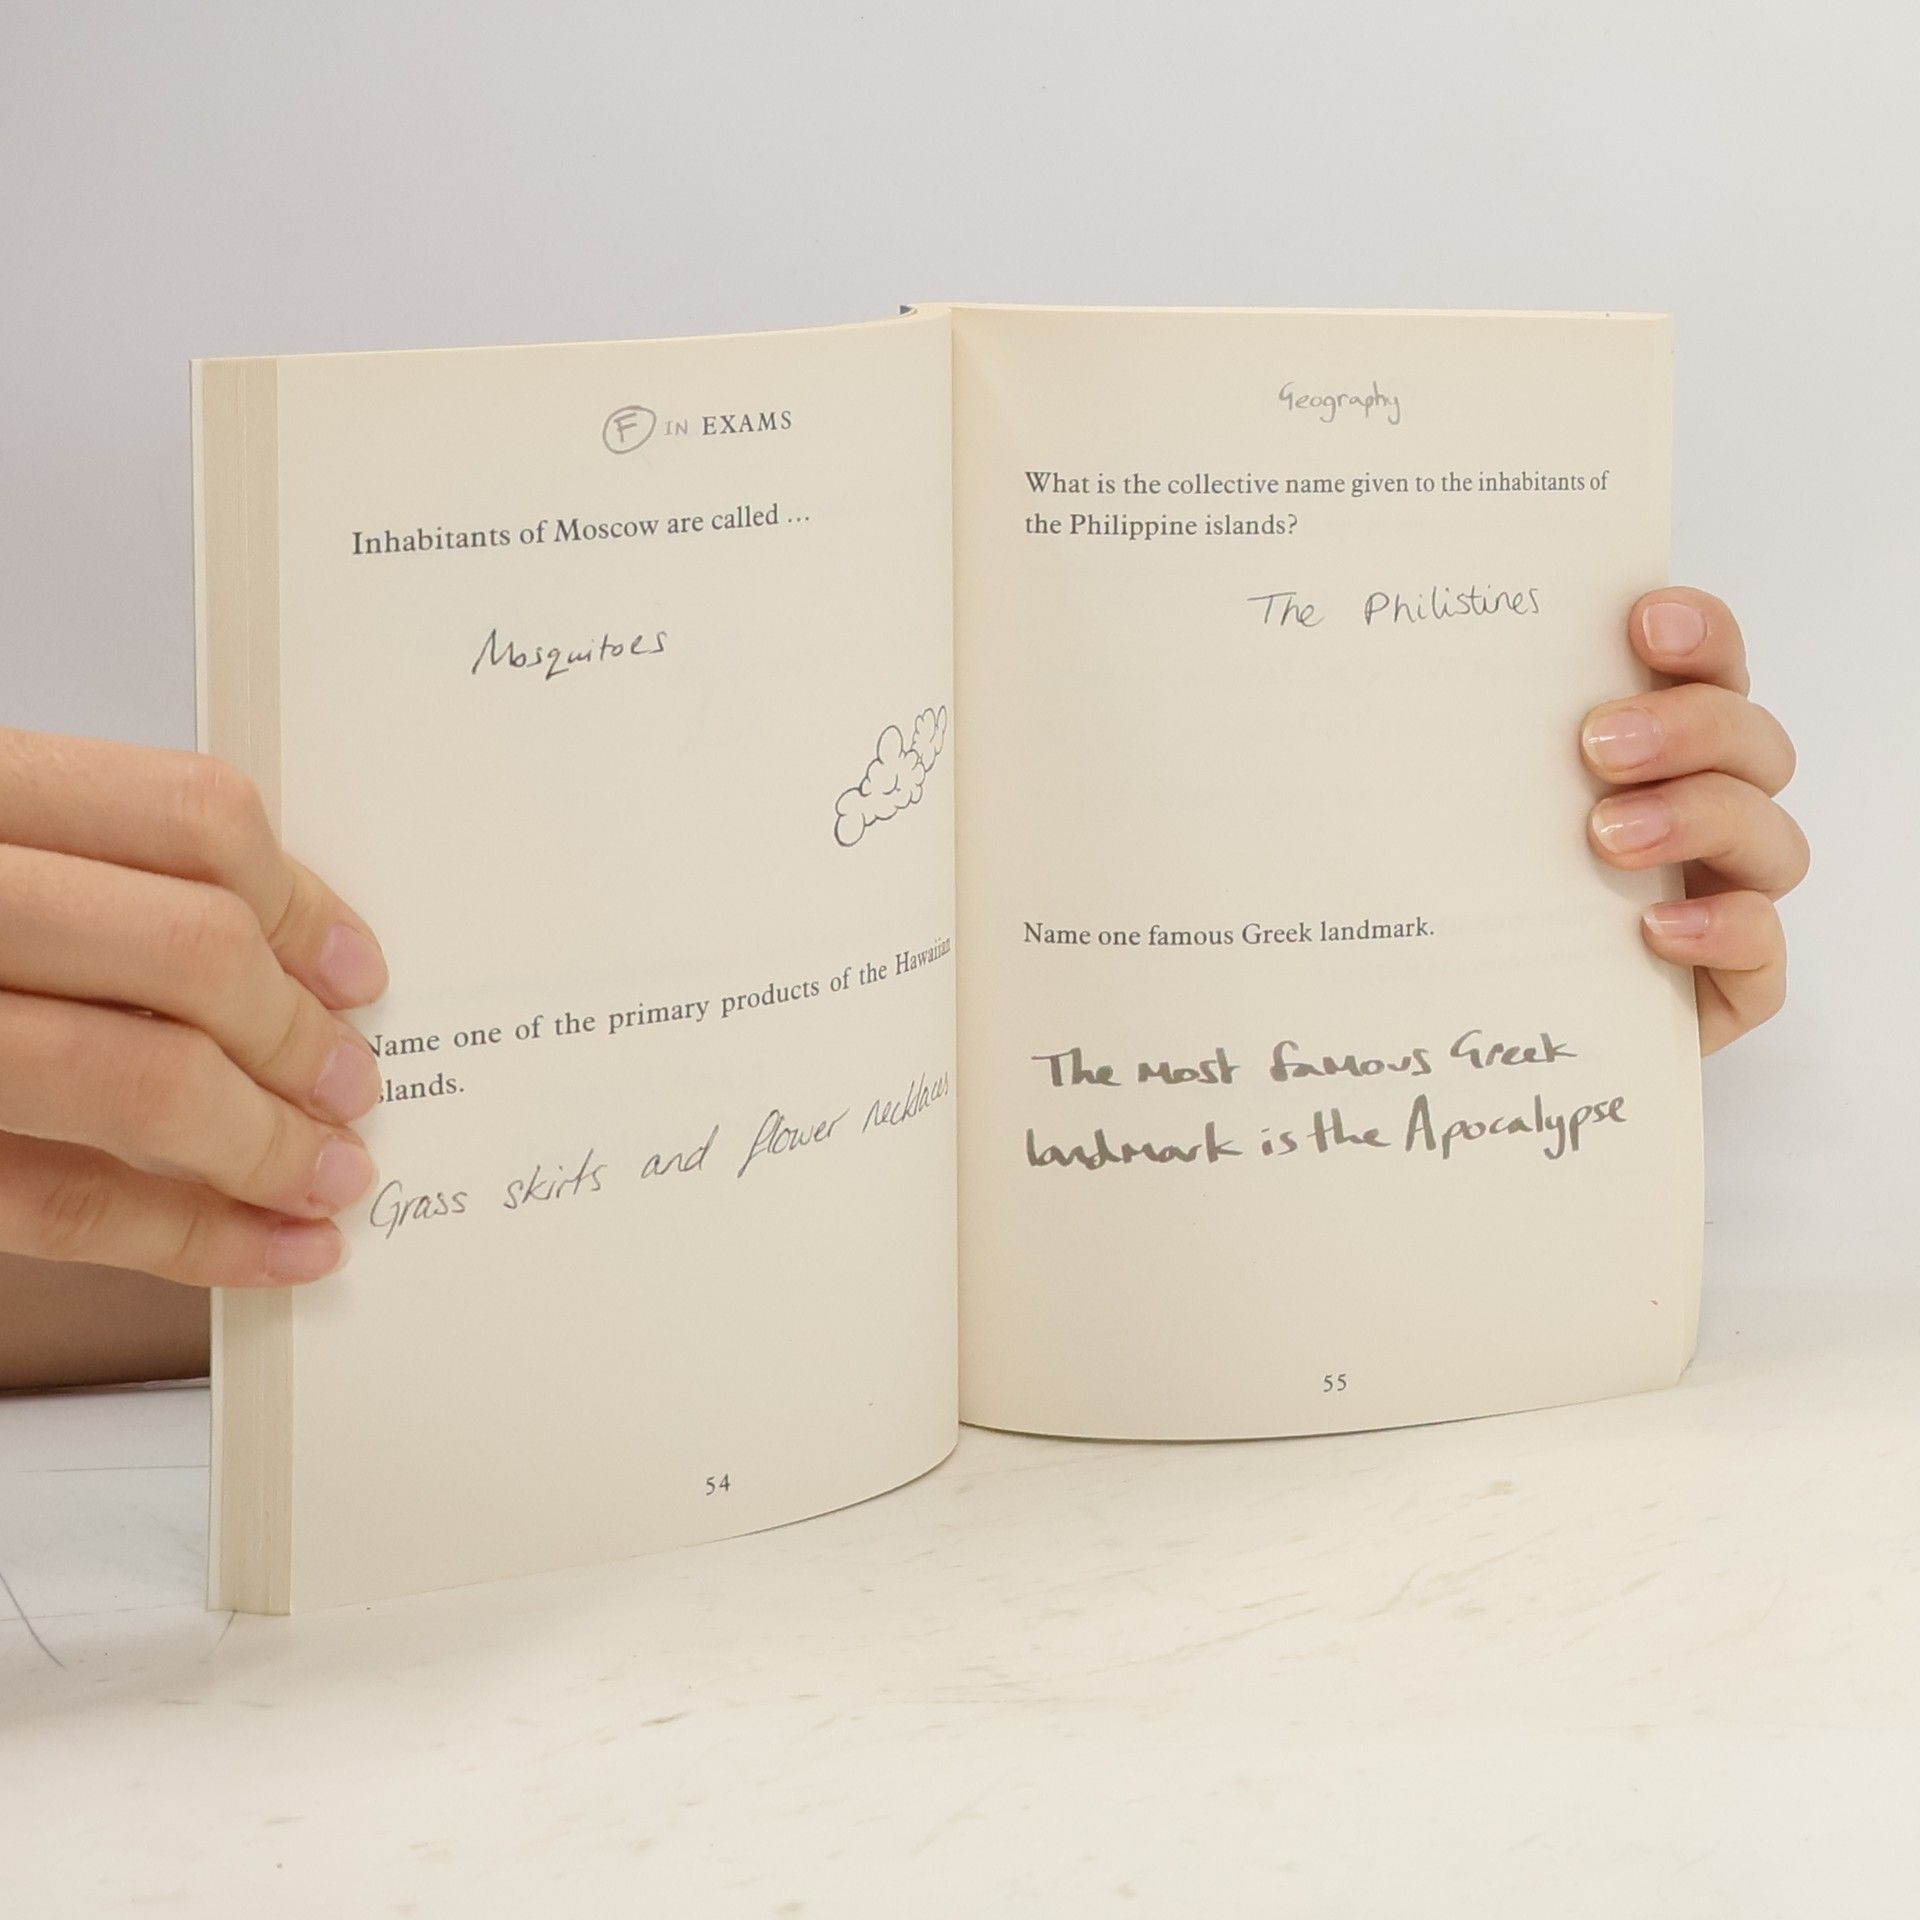 F IN EXAMS
Inhabitants of Moscow are called ...
Mosquitoes
Name one of the primary products of the Hawaiian
slands.
Grass skirts and flower necklaces
54
Geography
What is the collective name given to the inhabitants of
the Philippine islands?
The Philistines
Name one famous Greek landmark.
The most famous Greek
landmark is the Apocalypse
55